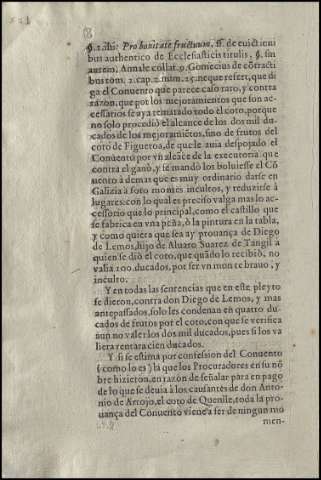 §. 2. ibi: Pro bonitate fructuum, ff. de euictioni
bus authentico de Ecclesiasticis titulis, §. sin
autem, Annale collat. 9. Gomecius de cõtractibus
tom. 2. cap. 2. num. 25. neque refert, que di
ga el Conuento que parece caso raro, y contra
razon, que por los mejoramientos que son ac-
cessarios se aya rematado todo el coto, porque
no solo procediò el alcance de los dos mil du-
cados de los mejoramiẽtos, sino de frutos del
coto de Figueroa, de que le auia despojado el
Conuento por vn alcãce de la executoria que
contra el ganò, y se mandò los boluiesse el Cõ
uento à demas que es muy ordinario darse en
Galizia à foro montes incultos, y reduzirse à
lugares: con lo qual es preciso valga mas lo ac-
cessorio que lo principal, como el castillo que
se fabrica en vna peña, ò la pintura en la tabla,
y como quiera que sea ay prouança de Diego
de Lemos, hijo de Aluaro Suarez de Tangil a
quien se diò el coto, que quãdo lo recibiò, no
valia 100. ducados, por ser vn monte brauo, y
inculto.
Y en todas las sentencias que en este pleyto
se dieron, contra don Diego de Lemos, y mas
antepassados, solo les condenan en quatro du-
cados de frutos por el coto, con que se verifica
aun no valer los dos mil ducados, pues si los va
liera rentara cien ducados.
Y si se estima por confession del Conuento
(como lo es) la que los Procuradores en su nõ
bre hizieron, en razon de señalar para en pago
de lo que se deuia à los causantes de don Anto-
nio de Arrojo, el coto de Quenlle, toda la pro-
uança del Conuento viene à ser de ningun mo
men-